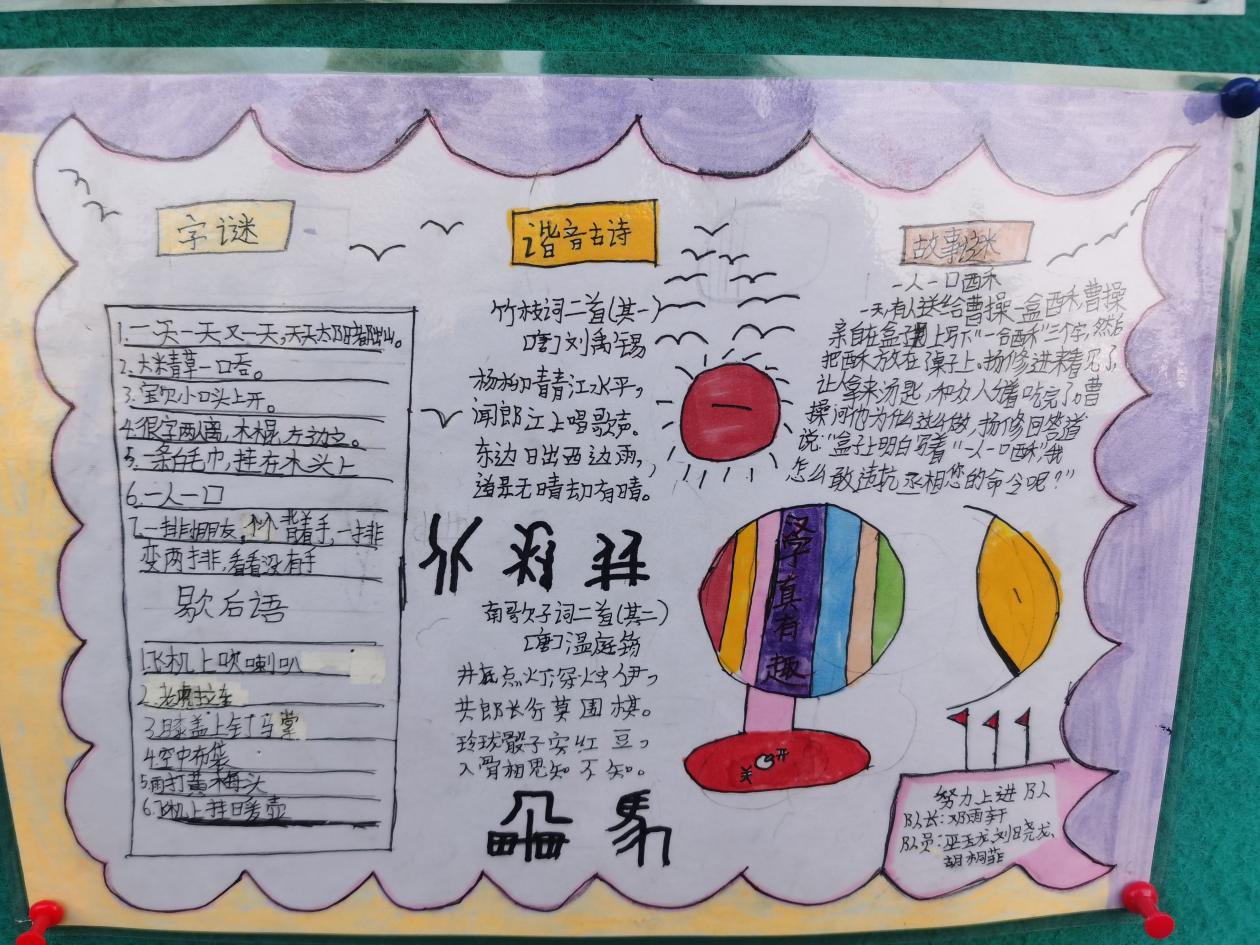 字谜
1.一天一天又一天,天天太阳晴出山。
2.大米青草一口吞。
3.宝贝小口头上开。
4.很字两人离,木棍左边立。
5.一条白毛巾,挂在木头上
6.一人一口
7.一排小朋友,个个背着手,一排
变两排,看看没有手
歇后语
1.飞机上吹喇叭
2.老虎拉车
3.膝盖上钉马掌
4.空中布袋
5.雨打黄梅头
6.飞机上挂暖壶
谐音古诗
竹枝词二首(其一)
[唐]刘禹锡
杨柳青青江水平,
闻郎江上唱歌声。
东边日出西边雨,
道是无晴却有晴。
南歌子词二首(其二)
[唐]温庭筠
井底点灯深烛伊,
共郎长行莫围棋。
玲珑骰子安红豆,
入骨相思知不知。
故事谜
一人一口酥
一天,有人送给曹操一盒酥,曹操
亲自在盒子上写下“一合酥”三个字,然后
把酥放在桌子上。杨修进来看见了
让人拿来汤匙,和众人分着吃完了。曹
操问他为什么这么做,杨修回答道
说:“盒子上明白写着“一人一口酥”,我
怎么敢违抗丞相您的命令呢?”
汉字真有趣
关 开
努力上进队
队长:邓雨轩
队员:巫玉龙、刘晓龙、
胡桐菲